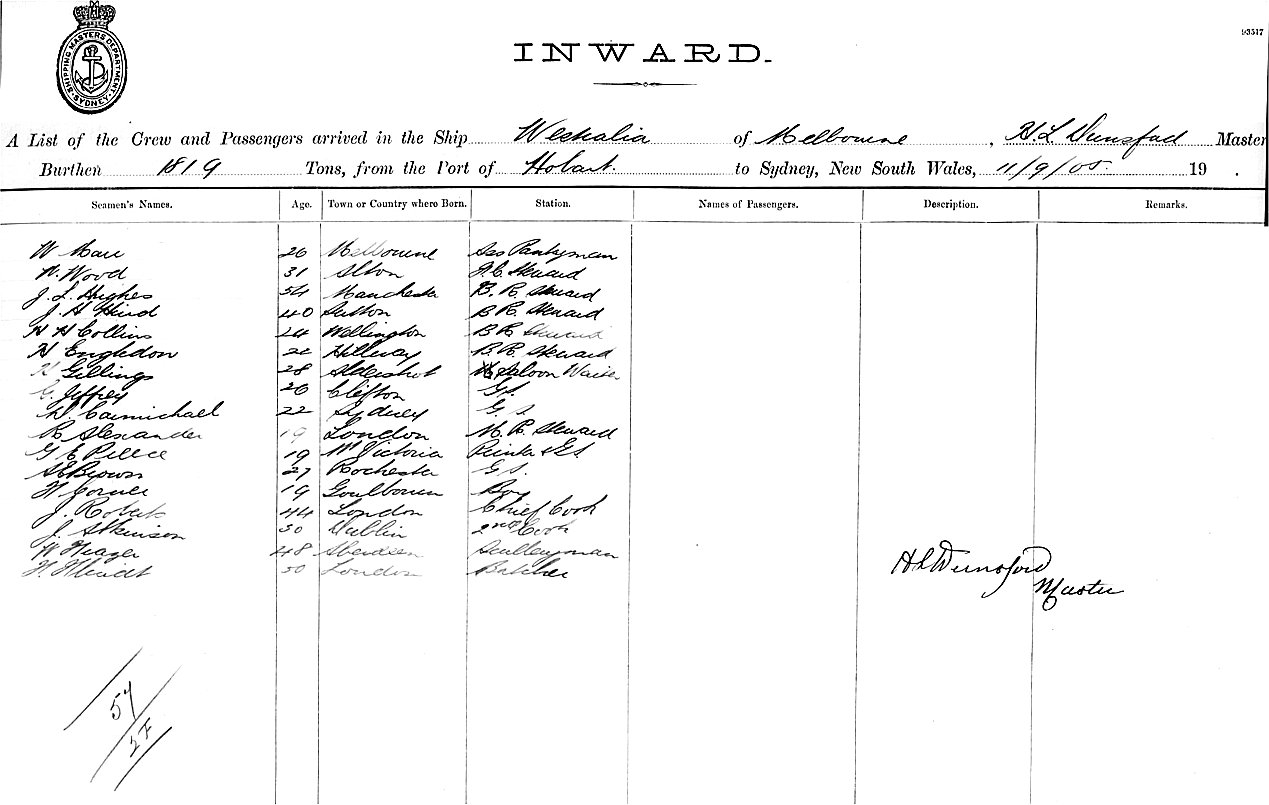 SHIPPING MASTERS DEPARTMENT. SYDNEY.
INWARD.
93517
A List of the Crew and Passengers arrived in the Ship Westralia of Melbourne, H. L. Dunsford Master
Burthen 1819 Tons, from the Port of Hobart. to Sydney, New South Wales, 11/9/05. 19 .
Seamen's Names. Age. Town or Country where Born. Station. Names of Passengers. Description. Remarks.
W 26 Melbourne Pantryman
Wood 31 Alton Steward
J. L. Hughes 54 Manchester B. R. Steward
J. H. Hind 40 Sutton B R. Steward
H H Collins 24 Wellington B R Steward
H Engledon B. R. Steward
Gillings 28 Aldershot Saloon Waiter
C. Jeffrey 26 Clifton G.S.
Carmichael 22 Sydney G. S.
R Alexander 19 London M. R. Steward
G E 19 Mt Victoria Printer & GS
Brown 27 Rochester G S.
19 Goulbourn Boy
J. Roberts 44 London Chief Cook
J. Atkinson 30 Dublin 2nd Cook
W 48 Aberdeen Sculleryman
30 London Butcher
H L Dunsford
Master
57
2F